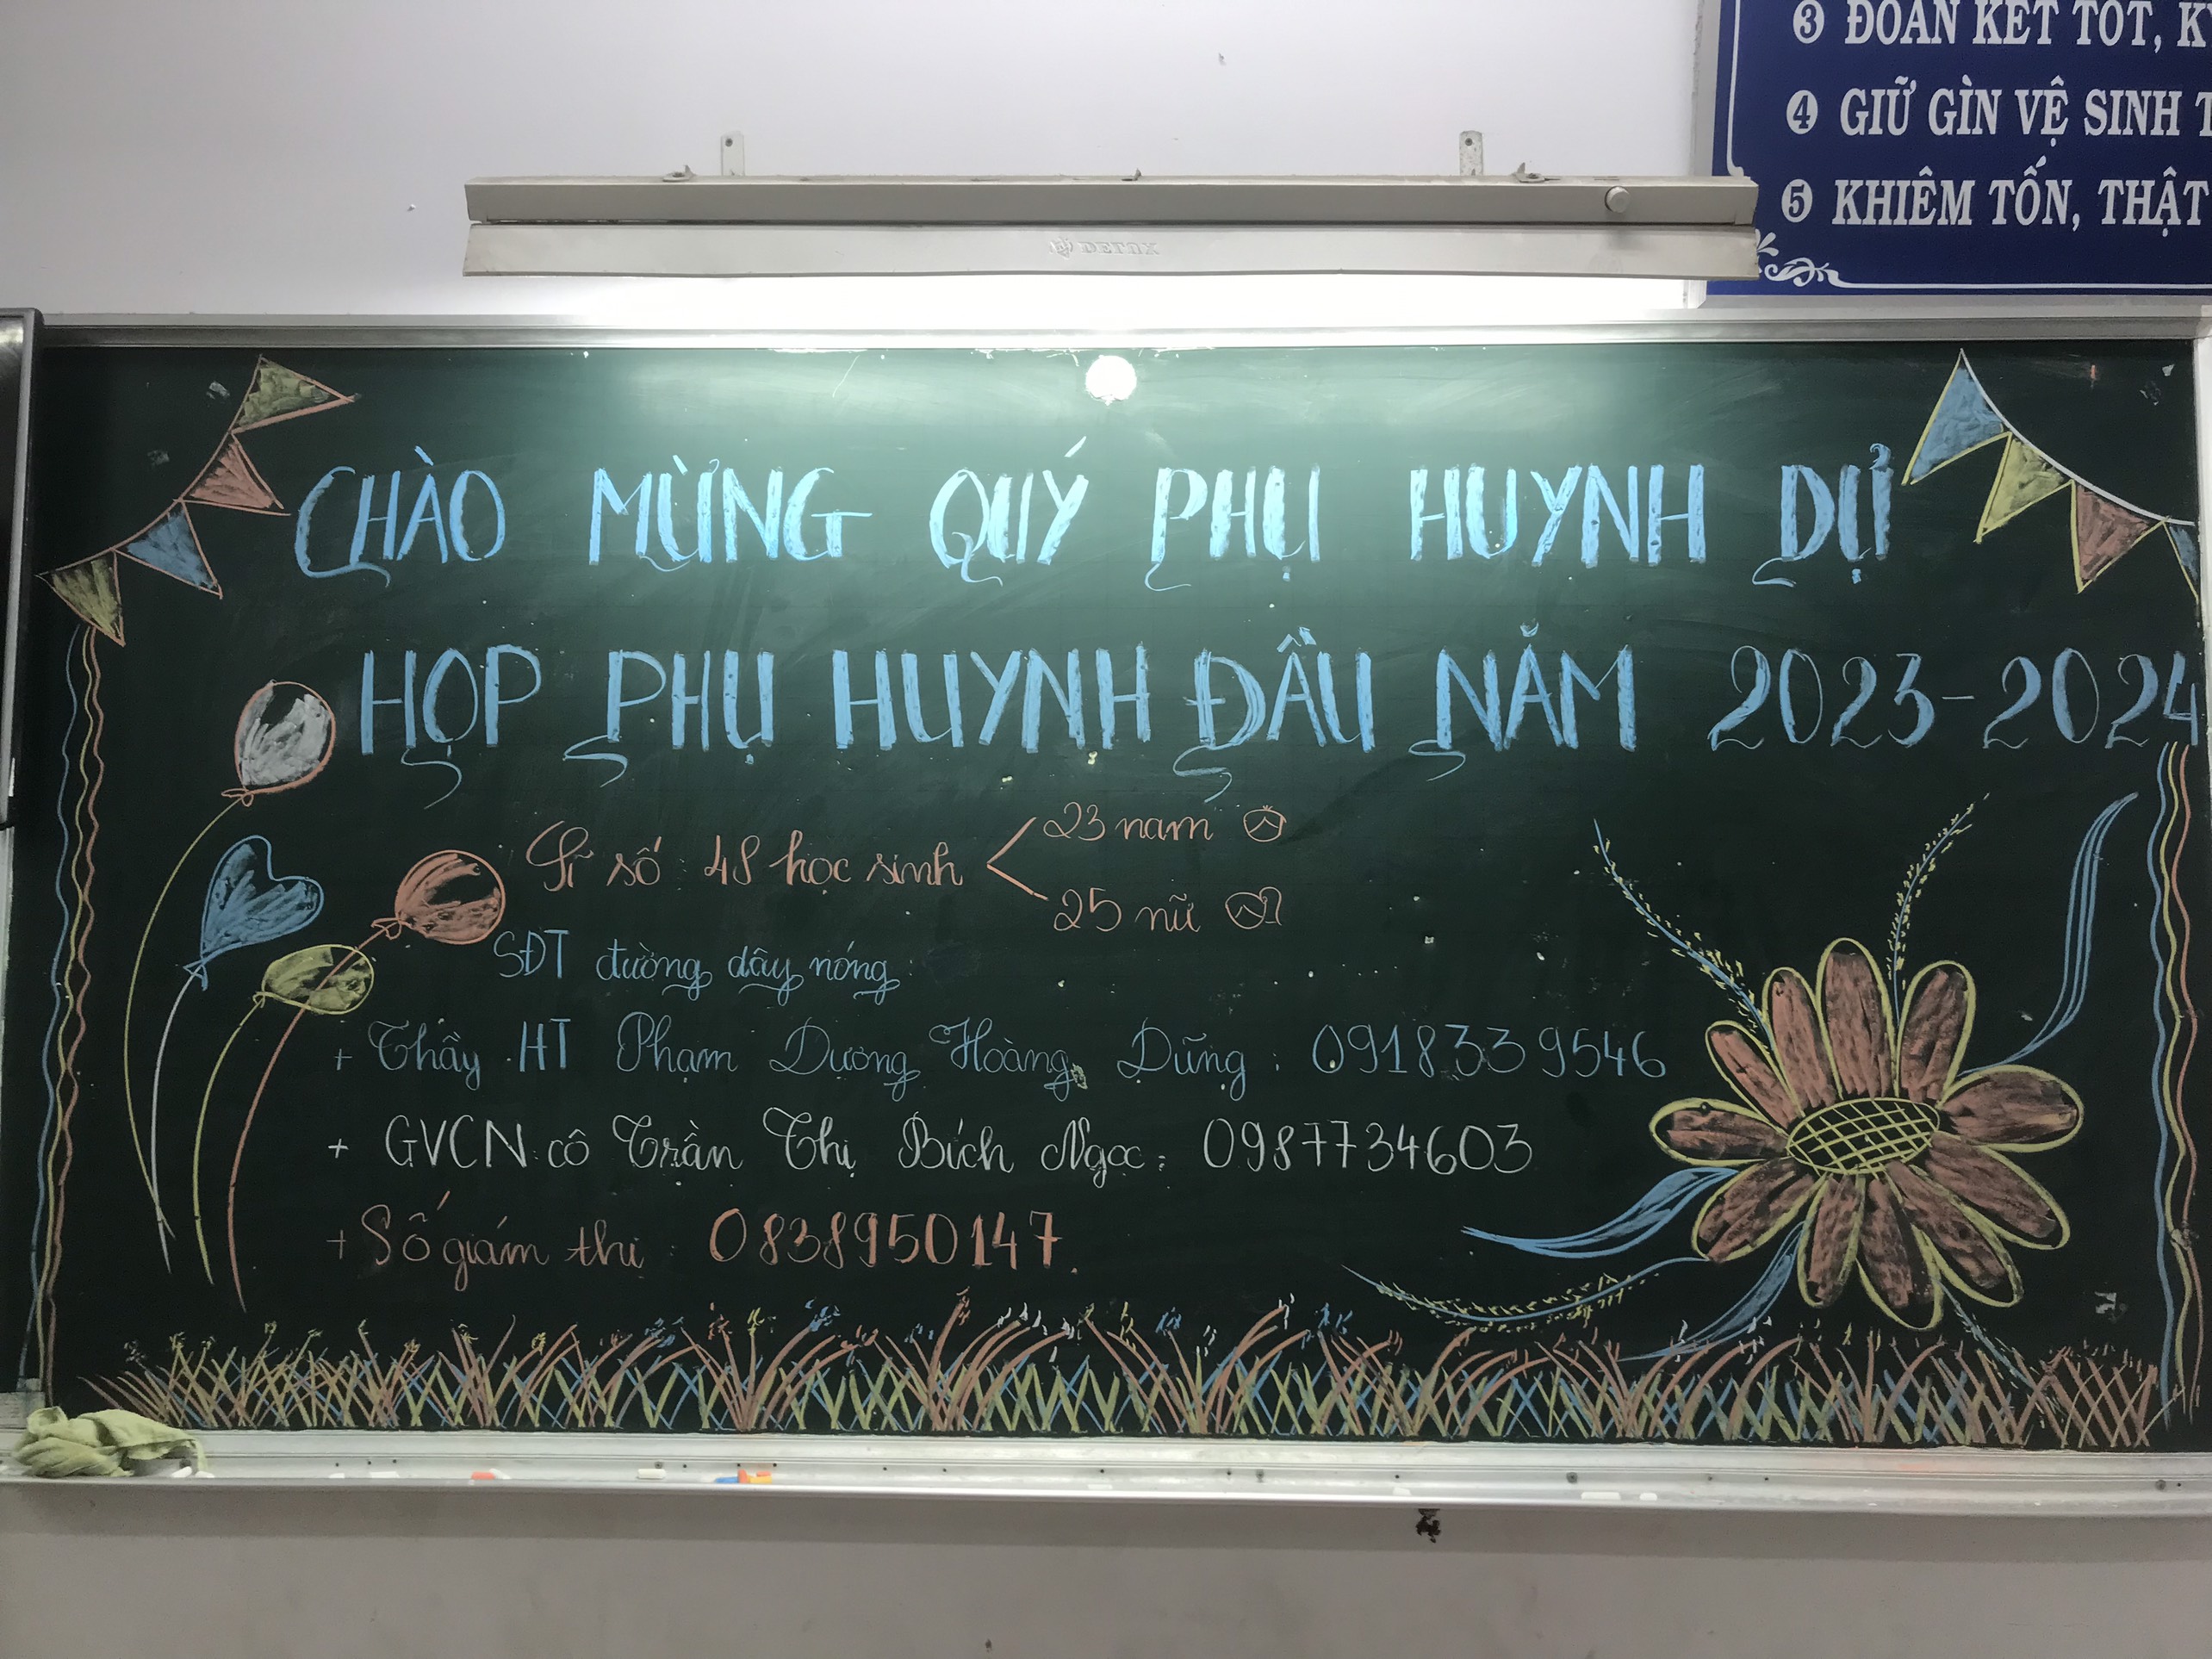 3 ĐOÀN KẾT TỐT, K
4 GIỮ GÌN VỆ SINH T
5 KHIÊM TỐN, THẬT
DETOX
CHÀO MỪNG QUÝ PHỤ HUYNH DỰ
HỌP PHỤ HUYNH ĐẦU NĂM 2023-2024
Sĩ số: 48 học sinh
23 nam
25 nữ
SĐT đường dây nóng:
+ Thầy HT Phạm Dương Hoàng Dũng: 0918339546
+ GVCN: cô Trần Thị Bích Ngọc: 0987734603
+ Số giám thị: 0838950147.